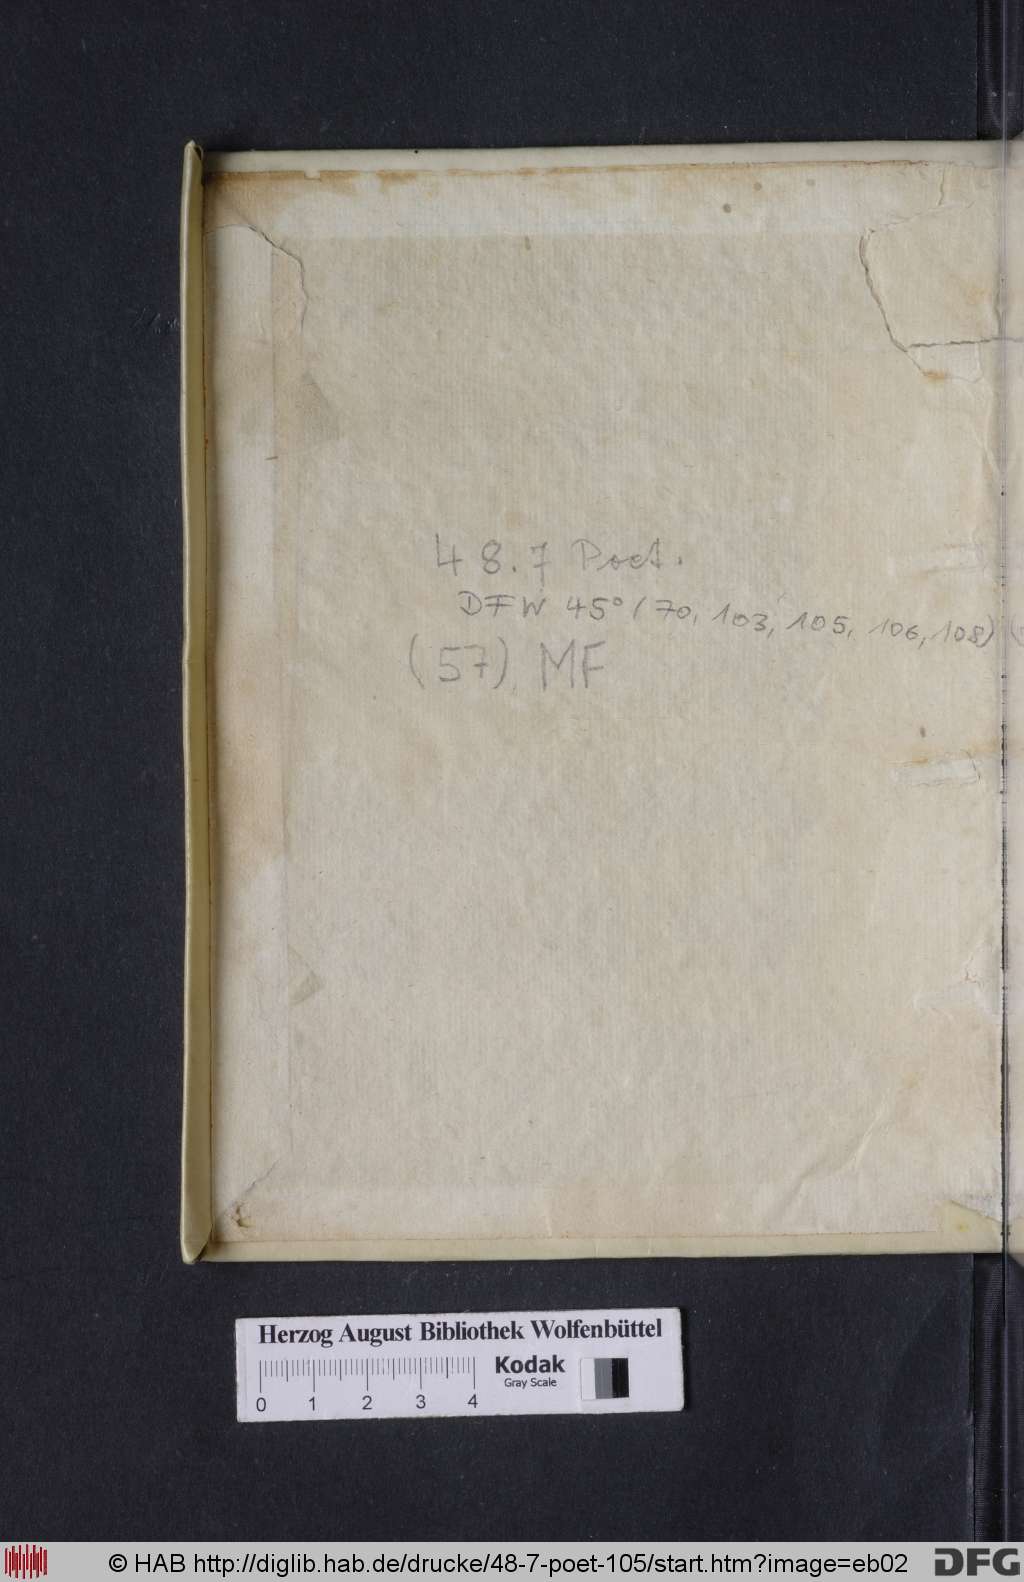 48.7 Poet.
DFW 45° (70, 103, 105, 106, 108) (
(57) MF
Herzog August Bibliothek Wolfenbüttel
Kodak
Gray Scale
0 1 2 3 4
© HAB http://diglib.hab.de/drucke/48-7-poet-105/start.htm?image=eb02
DFG